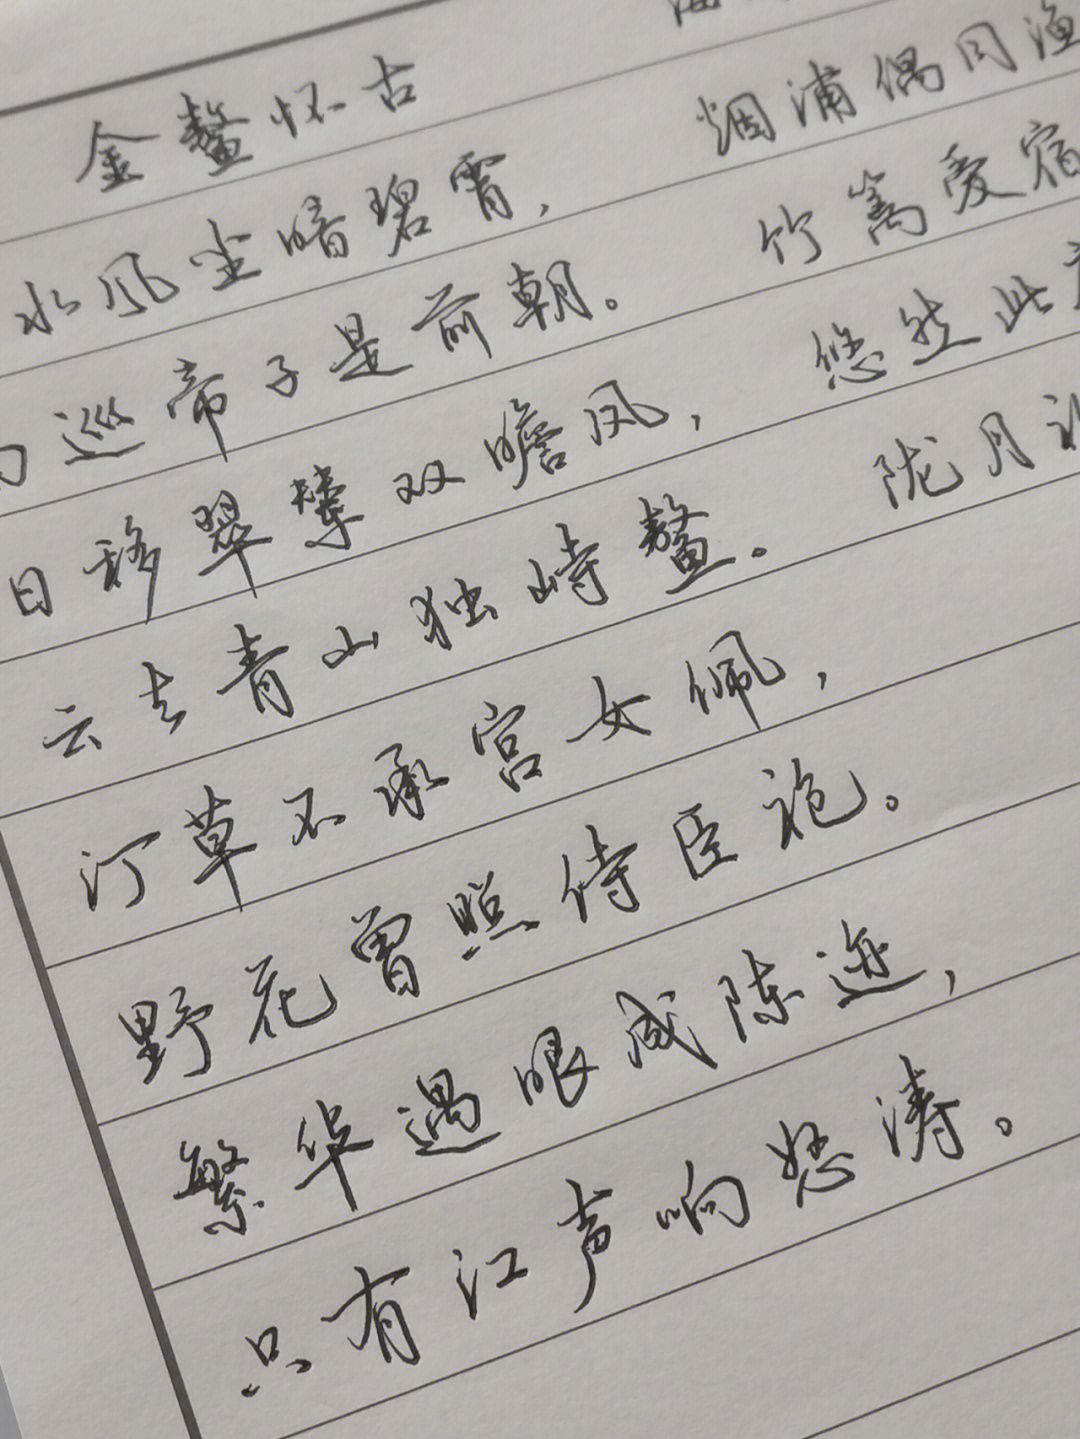 金鳌怀古
水风尘暗碧霄，
巡帝子是前朝。
日移翠辇双瞻凤，
云去青山独峙鳌。
汀草不承宫女佩，
野花曾照侍臣袍。
繁华遇眼成陈迹，
只有江声响怒涛。
烟浦偶同渔
竹篱爱宿
悠然此
陇月